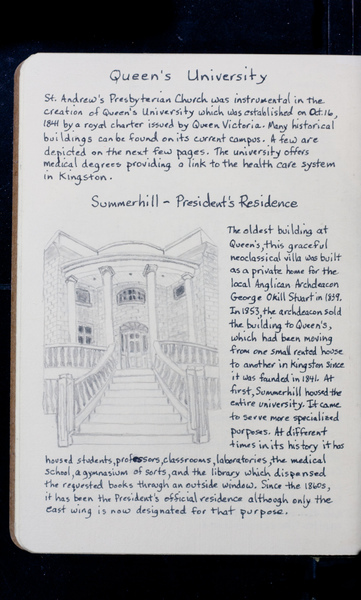 Queen's University
St. Andrew's Presbyterian Church was instrumental in the
creation of Queen's University which was established on Oct. 16,
1841 by a royal charter issued by Queen Victoria. Many historical
buildings can be found on its current campus. A few are
depicted on the next few pages. The university offers
medical degrees providing a link to the health care system
in Kingston.
Summerhill - President's Residence
The oldest building at
Queen's, this graceful
neoclassical villa was built
as a private home for the
local Anglican Archdeacon
George Okill Stuart in 1839.
In 1853, the archdeacon sold
the building to Queen's,
which had been moving
from one small rented house
to another in Kingston since
it was founded in 1841. At
first, Summerhill housed the
entire university. It came
to serve more specialized
purposes. At different
times in its history it has
housed students, professors, classrooms, laboratories, the medical
school, a gymnasium of sorts, and the library which dispensed
the requested books through an outside window. Since the 1860s,
it has been the President's official residence although only the
east wing is now designated for that purpose.